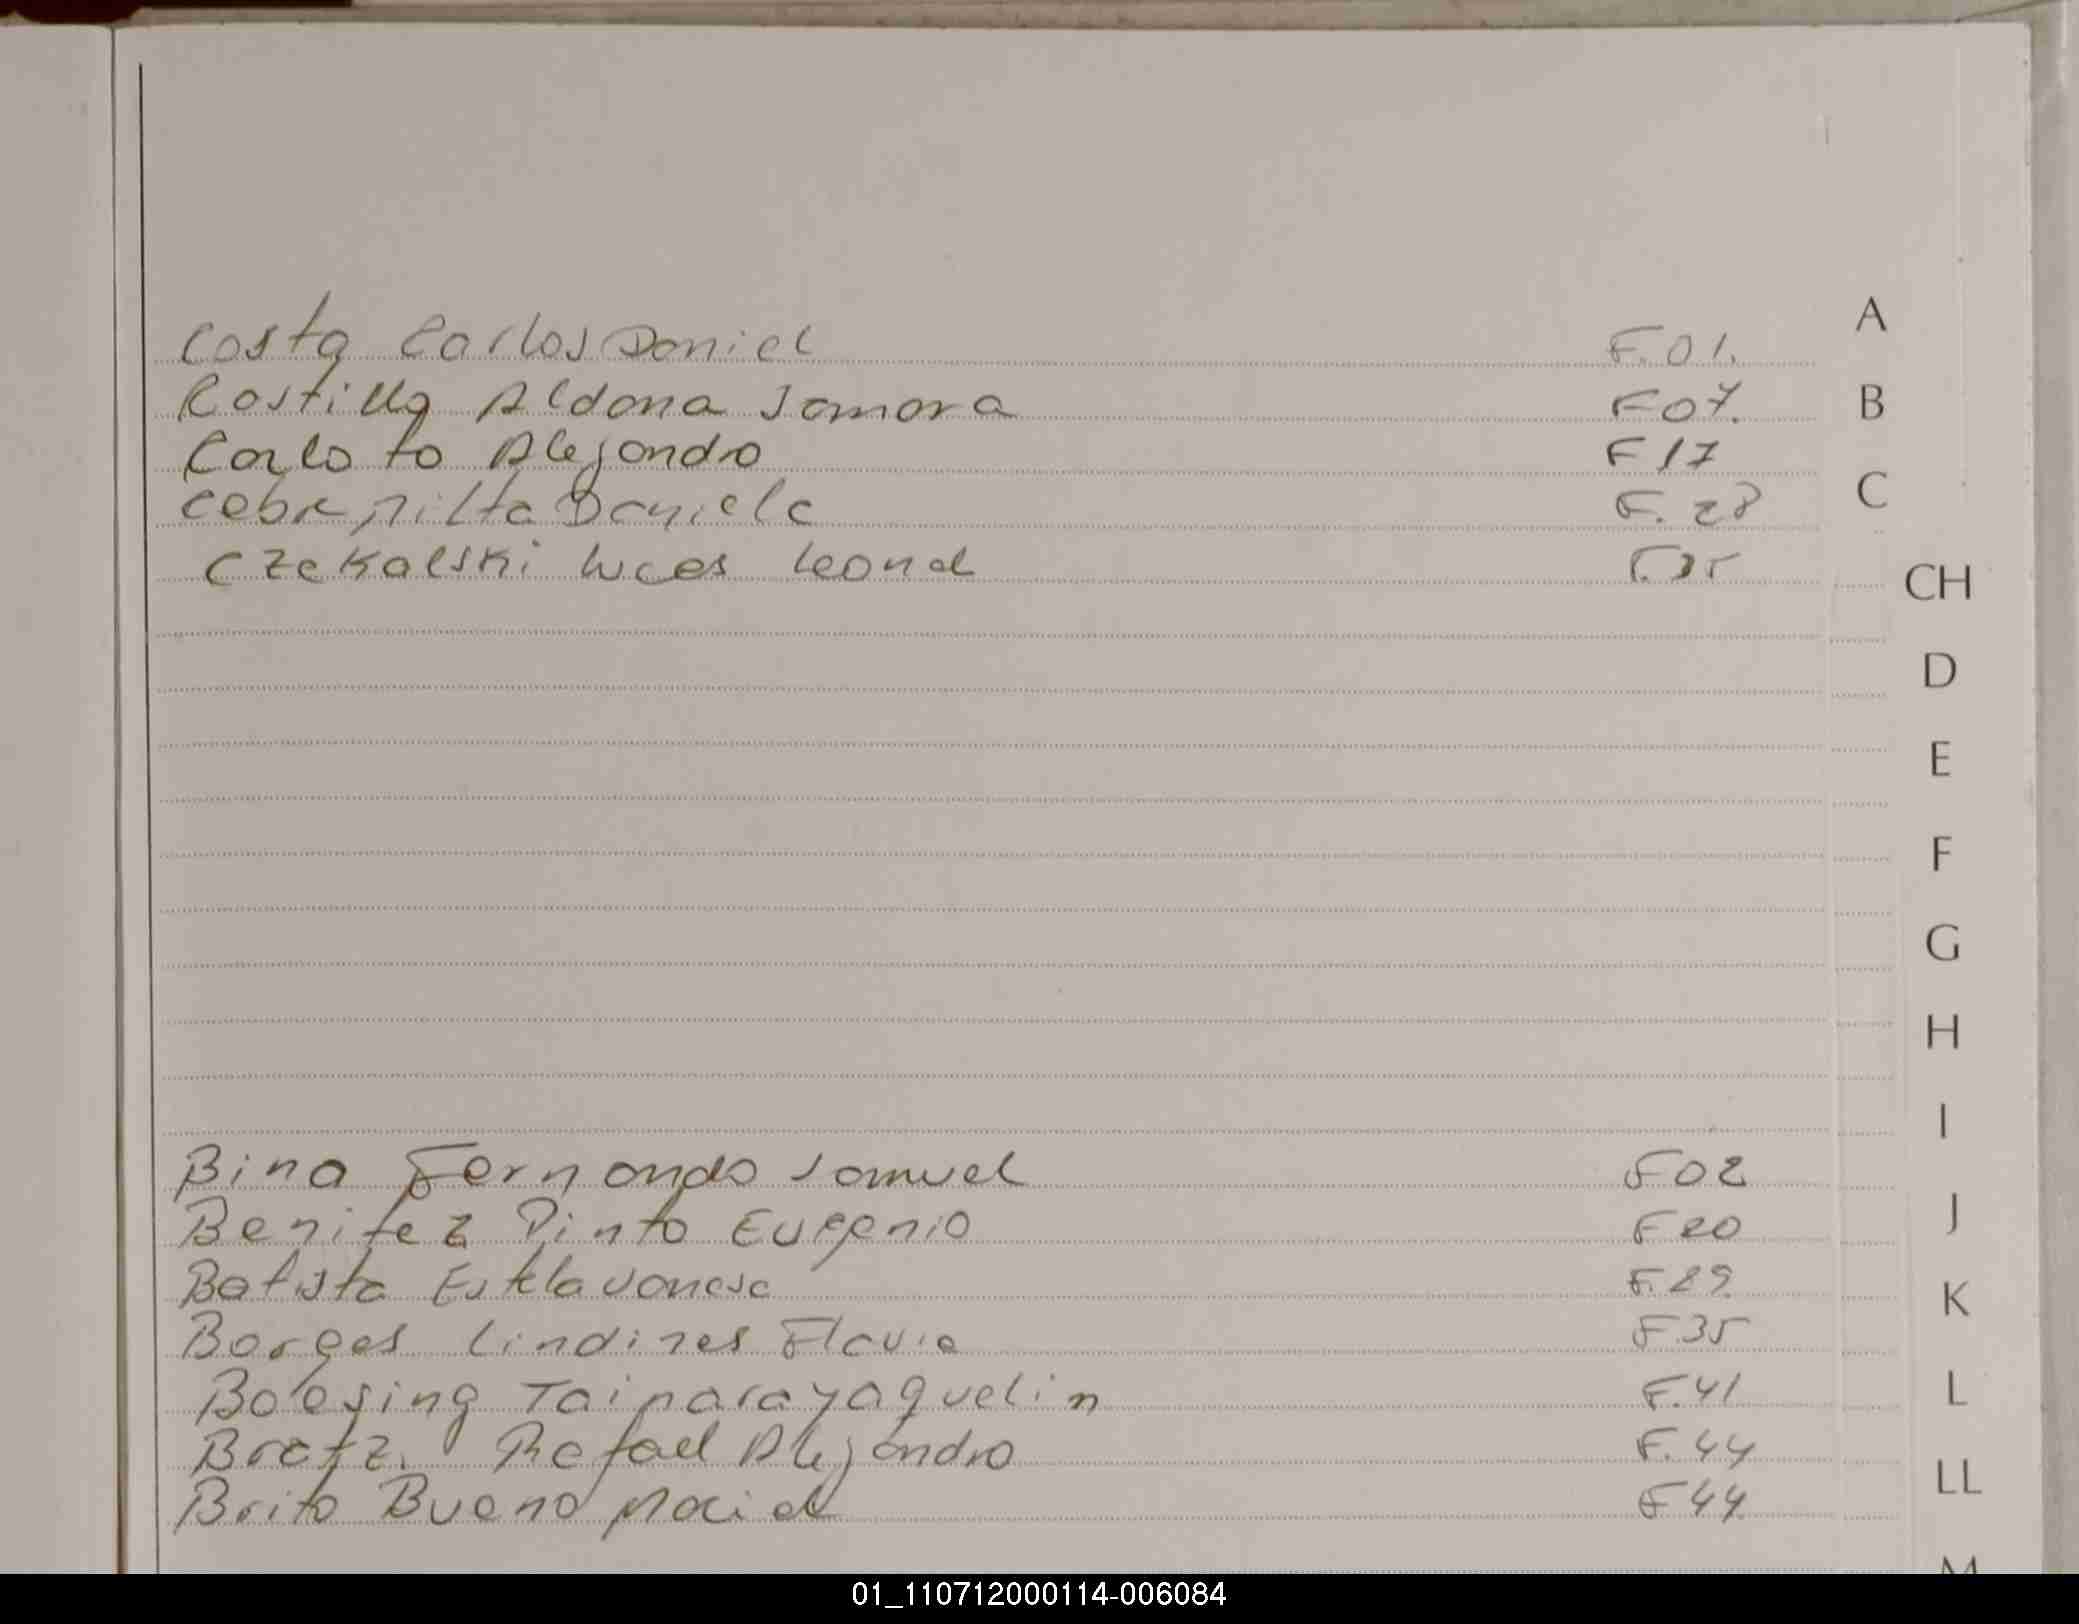 Costa Carlos Daniel F.01.
Costilla Aldana Samara F07.
Carloto Alejandro F17
Daniela F.28
Czekalski Lucas Leonel F.35
Bina Fernando Samuel F02
Benitez Pinto Eugenio F20
Batista F.29.
Borges Lindires Flavia F.35
Bolesing Tainara yaquelin F.41
Bratz. Rafael Alejandro F.44
Brito Bueno Maciel F44.
A
B
C
CH
D
E
F
G
H
I
J
K
L
LL
M
01_110712000114-006084